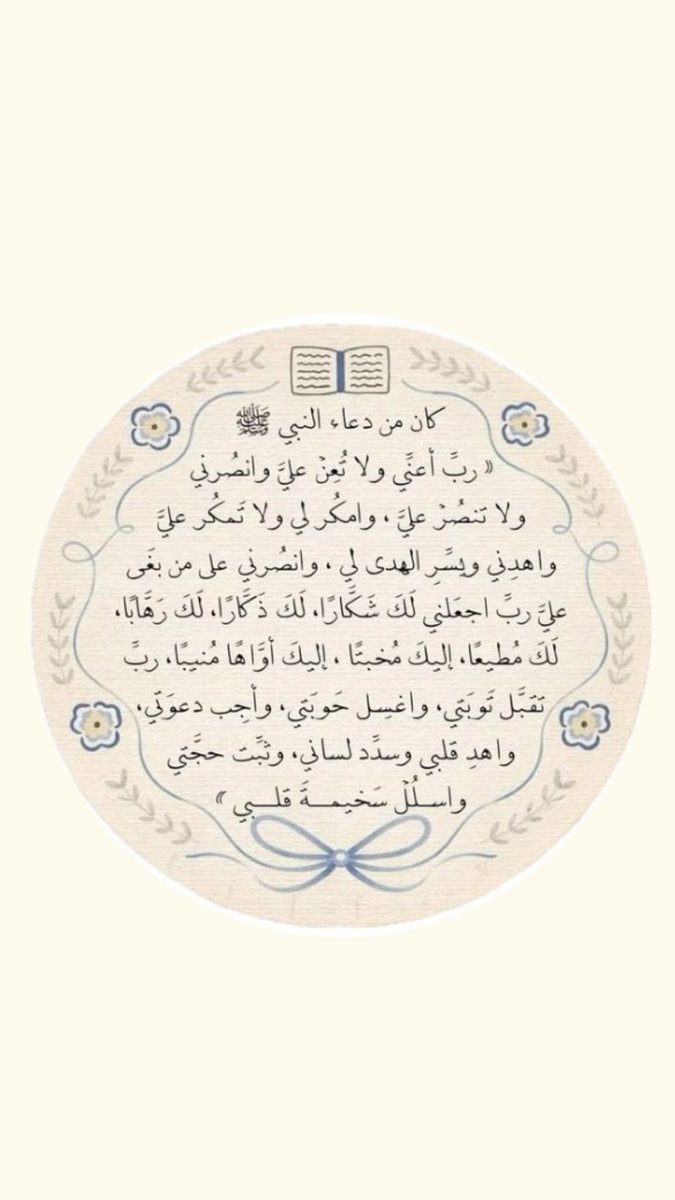 كان من دعاء النبي ﷺ
« ربِّ أعنِّي ولا تُعِنْ عليَّ وانصُرني
ولا تنصُرْ عليَّ ، وامكُر لي ولا تَمكُر عليَّ
واهدِني ويسِّرِ الهدى لي ، وانصُرني على من بغَى
عليَّ ربِّ اجعَلني لَكَ شَكَّارًا، لَكَ ذَكَّارًا، لَكَ رَهَّابًا،
لَكَ مُطيعًا، إليكَ مُخبتًا ، إليكَ أوَّاهًا مُنيبًا، ربِّ
تقبَّل تَوبَتي، واغسِل حَوبَتي، وأجِب دعوَتي،
واهدِ قلبي وسدِّد لساني، وثبِّت حجَّتي
واســلُلْ سَخيمــةَ قلــبي »